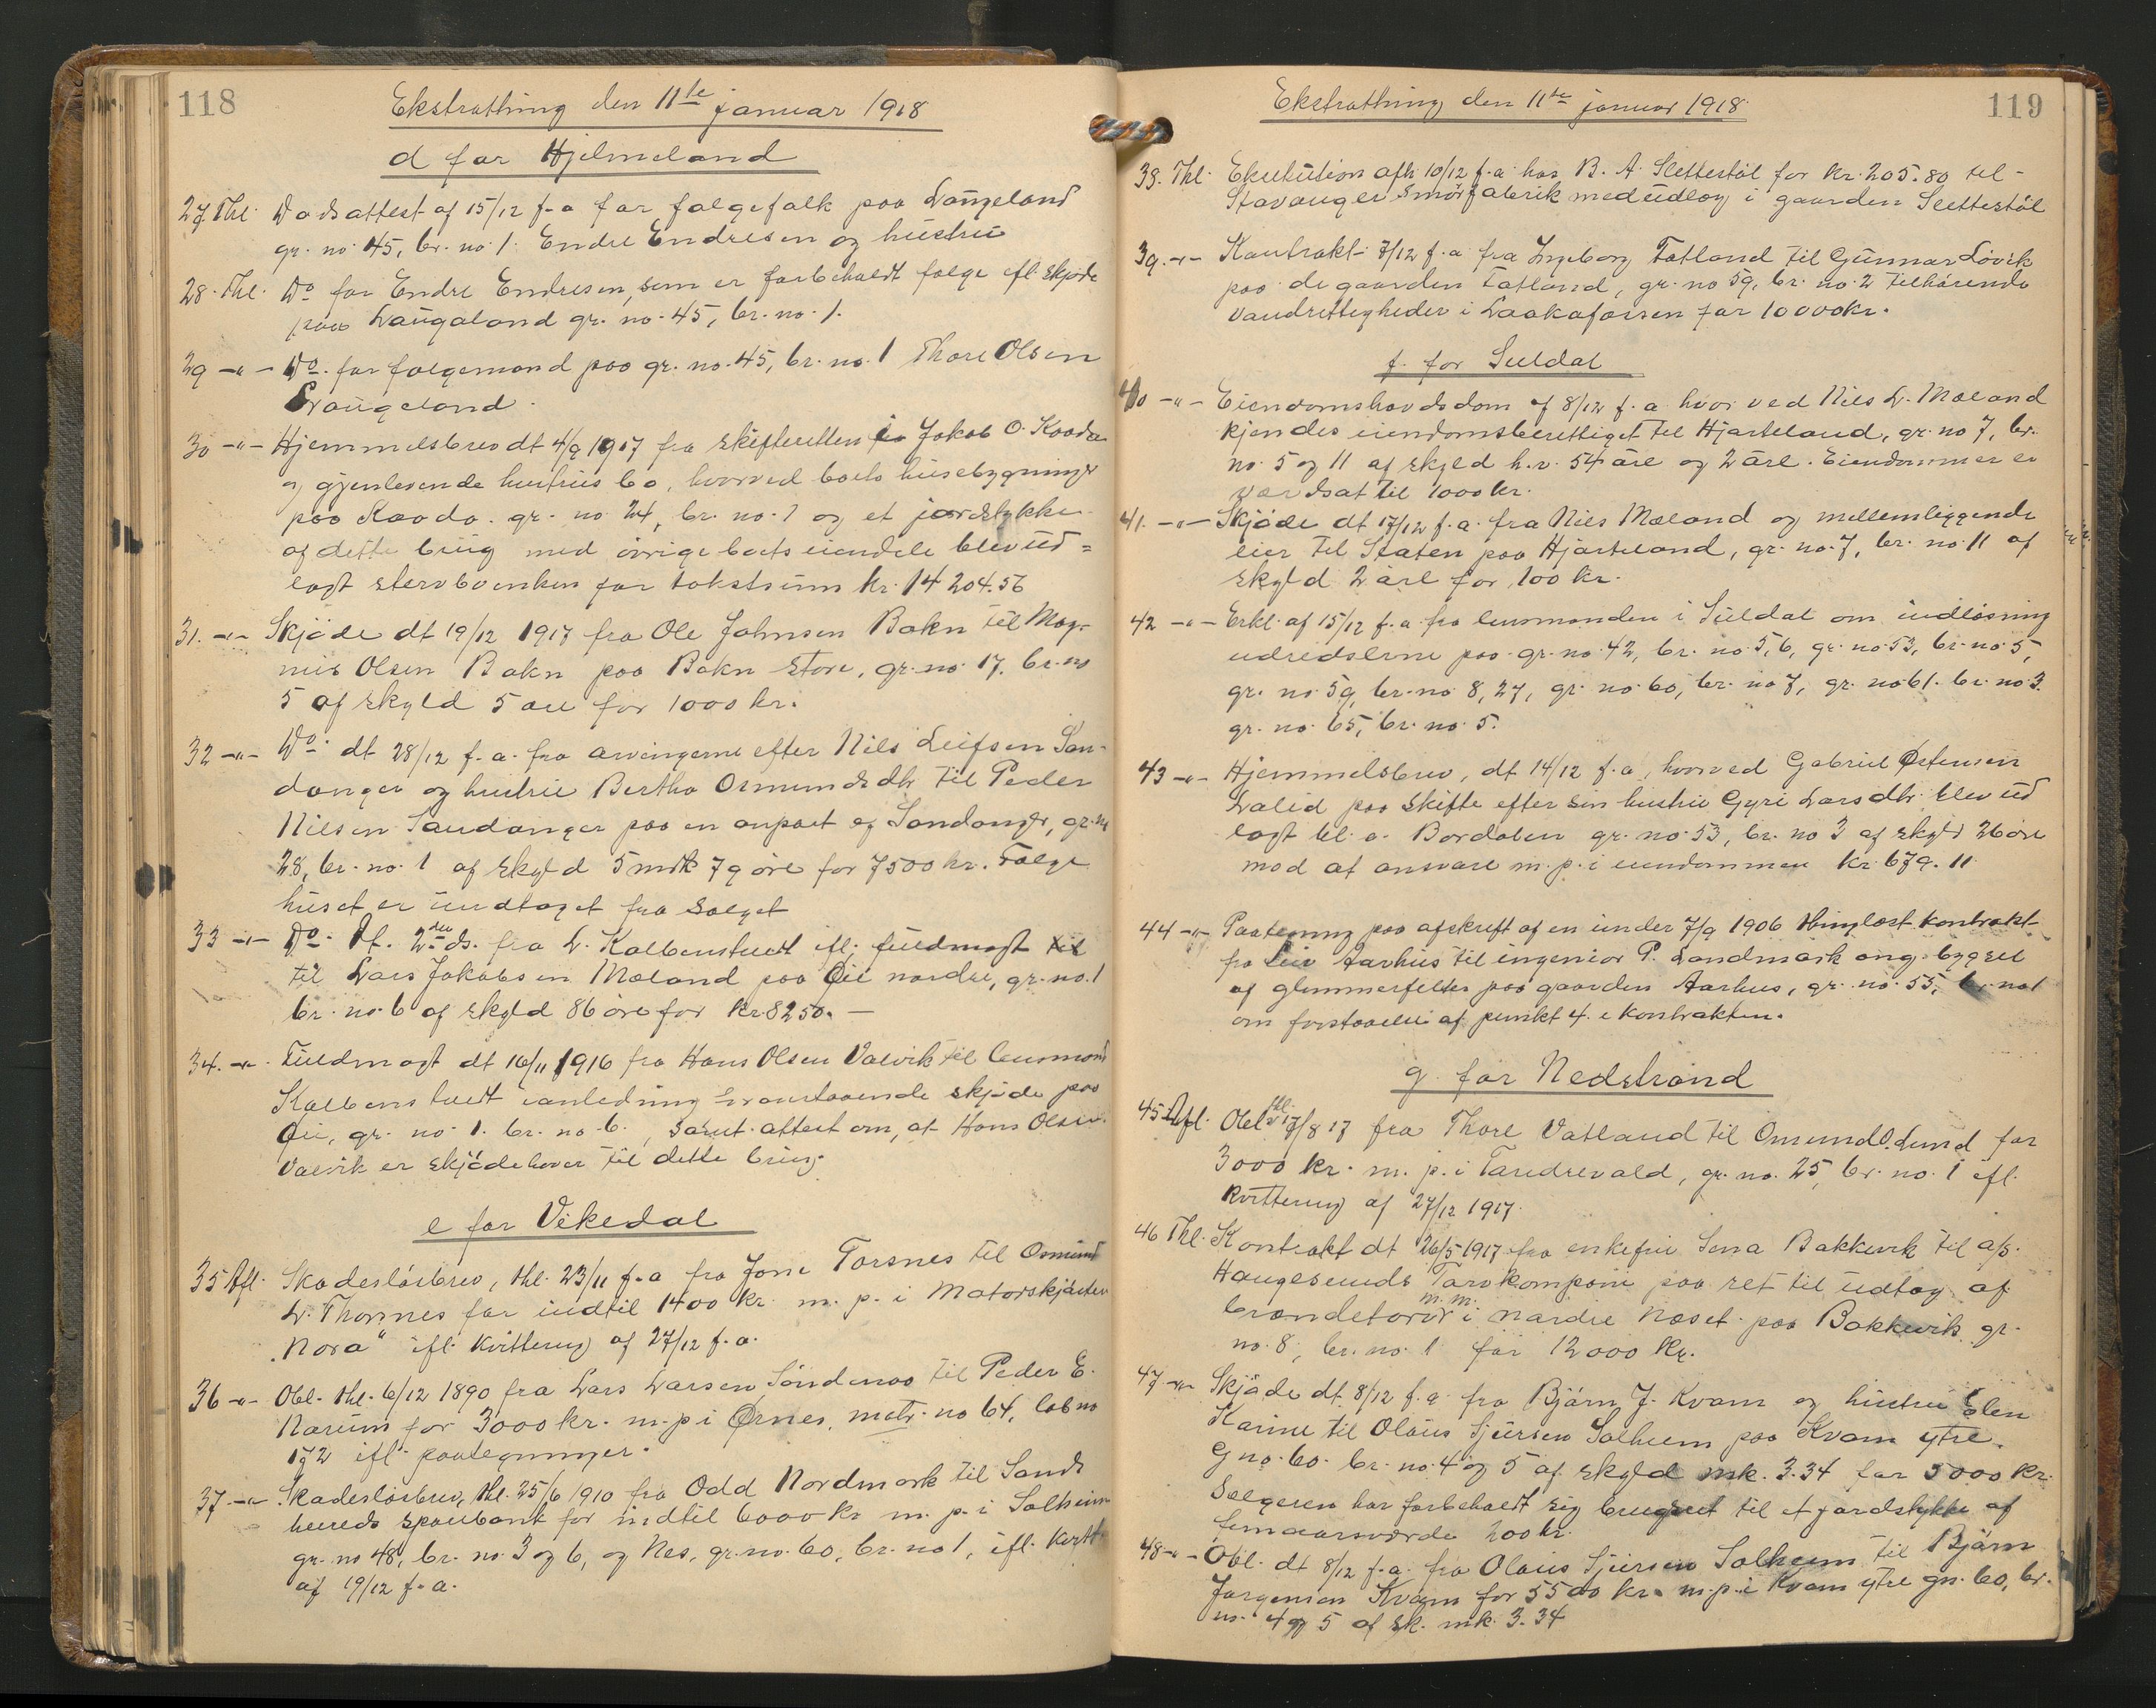 118
Ekstrathing den 11te januar 1918
d for Hjelmeland
27 Thl. Dødsattest af 15/12 f.a for følgefolk paa Laugeland
gr. no. 45, br. no 1. Endre Endresen og hustru
28. Thl. Do for Endre Endresen, som er forbeholdt følge ifl. skjøde
paa Laugaland gr. no. 45, br. no. 1.
29 -"- Do. for følgemand paa gr. no. 45, br. no. 1 Thore Olsen
Laugeland.
30 -"- Hjemmelsbrev dt 4/9 1917 fra skifteretten i Jakob O. Kaada
og gjenlevende hustrus bo, hvorved boets husebygninger
paa Kaada. gr. no. 24, br. no. 1 og et jordstykke
af dette brug med øvrige boets eiendele blev ud=
lagt stervboenken for takstsum kr. 14204.56
31. -"- Skjøde dt 19/12 1917 fra Ole Johnsen Bokn til Mag-
nus Olsen Bokn paa Bokn store, gr. no. 17. br. no
5 af skyld 5 øre for 1000 kr.
32 -"- Do. dt 28/12 f.a. fra arvingerne efter Nils Leifsen San-
danger og hustru Bertha Osmundsdtr til Peder
Nilsen Sandanger paa en anpart af Sandanger, gr. no
28, br. no. 1 af skyld 5 mrk 79 øre for 7500 kr. Følge
huset er undtaget fra salget
33 -"- Do. dt. 2den ds. fra L. Kolbenstvedt ifl. fuldmagt til
til Lars Jakobsen Mæland paa Øie nordre, gr. no. 1
br. no. 6 af skyld 86 øre for kr. 8250. —
34. -"- Fuldmagt dt 16/11 1916 fra Hans Olsen Valvik til lensmand
Kolbenstvedt i anledning ovenstaaende skjøde paa
Øie, gr. no 1. br. no. 6., samt attest om, at Hans Olsen
Valvik er skjødehaver til dette brug.
e for Vikedal
35 Afl. Skadesløsbrev, thl. 23/11 f.a fra Jone Torsnes til Osmund
L. Thornes for indtil 1400 kr. m. p. i Motorskjøiten
"Nora" ifl. kvittering af 27/12 f.a.
36 -"- Obl. thl. 6/12 1890 fra Lars Larsen Søndenaa til Peder E.
Narum for 3000 kr. m. p i Ørnes, matr. no 64, løb no
172 ifl. paategninger.
37 -"- Skadesløsbrev, thl. 25/6 1910 fra Odd Nordmork til Sands
herreds sparebank for indtil 6000 kr m. p. i Solheim
gr. no 48, br. no. 3 og 6, og Nes, gr. no. 60, br. no 1, ifl. kvitt.
af 19/12 f.a.
119
Ekstrathing den 11te januar 1918
38. Thl. Ekskution afh. 10/12 f.a hos B. A. Slettestøl for kr. 205.80 til
Stavanger Smørfabrik med udlæg i gaarden Slettestøl
39. -"- Kontrakt 7/12 f.a fra Ingeborg Fatland til Gunnar Løvik
paa de gaarden Fatland, gr. no 59, br. no. 2 tilhørende
vandrettigheder i Laakafossen for 10000 kr.
f. for Suldal
40 -"- Eiendomshævdsdom af 8/12 f.a. hvorved Nils L. Mæland
kjendes eiendomsberettiget til Hjorteland, gr. no 7, br.
no. 5 og 11 af skyld h.v. 54 øre og 2 øre. Eiendommen er
værdsat til 1000 kr.
41. -"- Skjøde dt 17/12 f.a. fra Nils Mæland og mellemliggende
eier til Staten paa Hjorteland, gr. no. 7, br. no. 11 af
skyld 2 øre for 100 kr.
42 -"- Erkl. af 15/12 f.a. fra lensmanden i Suldal om indløsning
udredslerne paa gr. no. 42, br. no. 5, 6, gr. no 53, br. no. 5,
gr. no 59, br. no 8, 27, gr. no. 60, br. no 7, gr. no 61. br. no 3.
gr. no. 65, br. no. 5.
43 -"- Hjemmelsbrev, dt 14/12 f.a, hvorved Gabriel Østensen
Lalid paa skifte efter sin hustru Gyri Larsdtr. blev ud
lagt bl. a. Bordalen gr. no. 53, br. no 3 af skyld 26 øre
mod at ansvare m. p. i eiendommen kr. 679.11
44 -"- Paategning paa afskrift af en under 7/9 1906 thinglæst kontrakt
fra Aarhus til ingeniør P. Landmark ang. bygsel
af glimmerfelter paa gaarden Aarhus, gr. no. 55, br. no 1
om forstaaelse af punkt 4. i kontrakten.
g. for Nedstrand
45 Afl. Obl. thl. 17/8 17 fra Thore Vatland til Omund O. Lund for
3000 kr. m. p. i Taredrevald, gr. no. 25, br. no. 1 ifl.
kvittering af 27/12 1917.
46 Thl. Kontrakt dt 26/5 1917 fra enkefru Sena Bakkevik til a/s.
Haugesunds Torvkompani paa ret til udtag af
brændetorv m. m. i nordre Næset paa Bakkevik gr.
no. 8, br. no. 1 for 12000 kr.
47 -"- Skjøde dt. 8/12 f.a fra Bjørn J. Kvam og hustru Elen
Karine til Olaus Sjursen Solheim paa Kvam ytre.
G no. 60. br. no. 4 og 5 af skyld mk. 3.34 for 5000 kr.
Sælgeren har forbeholdt sig brugsret til et jordstykke af
femaarsværde 200 kr.
48 -"- Obl. dt 8/12 f.a. fra Olaus Sjursen Solheim til Bjørn
Jørgensen Kvam for 5500 kr. m. p. i Kvam ytre gn. 60, br.
no. 4 og 5 af sk. mk. 3.34